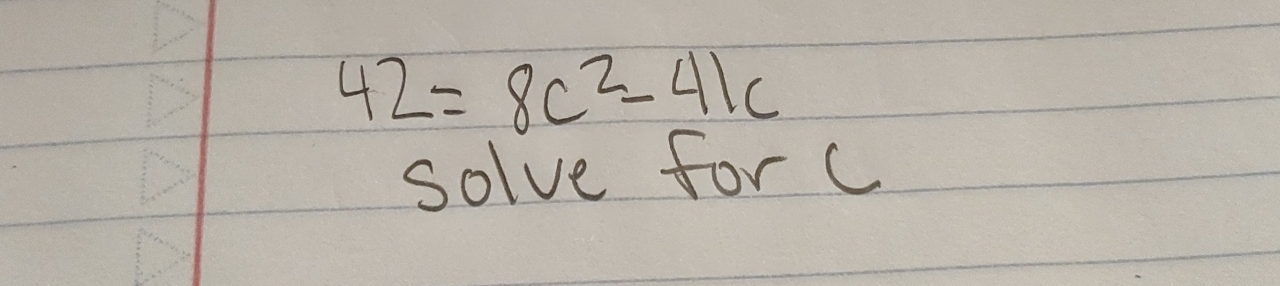 42= 8c²-41c
solve for c